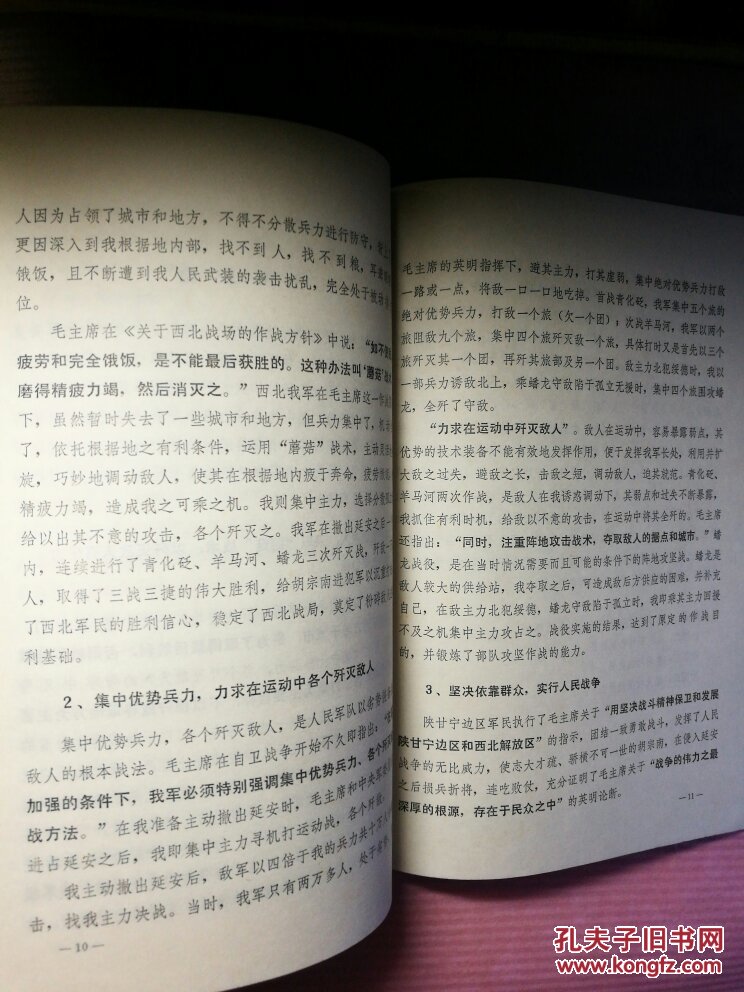 人因为占领了城市和地方，不得不分散兵力进行防守，
更因深入到我根据地内部，找不到人，找不到粮，
饿饭，且不断遭到我人民武装的袭击扰乱，完全处于被动
位。
毛主席在《关于西北战场的作战方针》中说：“如不
疲劳和完全饿饭，是不能最后获胜的。这种办法叫‘蘑菇’
磨得精疲力竭，然后消灭之。”西北我军在毛主席这一
下，虽然暂时失去了一些城市和地方，但兵力集中了，
了，依托根据地之有利条件，运用“蘑菇”战术，主动
旋，巧妙地调动敌人，使其在根据地内疲于奔命，疲劳
精疲力竭，造成我之可乘之机。我则集中主力，选择
给以出其不意的攻击，各个歼灭之。我军在撤出延安之后
内，连续进行了青化砭、羊马河、蟠龙三次歼灭战，歼
人，取得了三战三捷的伟大胜利，给胡宗南进犯军以沉重
了西北军民的胜利信心，稳定了西北战局，奠定了粉碎
利基础。
2、集中优势兵力，力求在运动中各个歼灭敌人
集中优势兵力，各个歼灭敌人，是人民军队以劣势
敌人的根本战法。毛主席在自卫战争开始不久即指出：
加强的条件下，我军必须特别强调集中优势兵力、各个歼
战方法。”在我准备主动撤出延安时，毛主席和中央
进占延安之后，我即集中主力寻机打运动战，各个歼敌。
我主动撤出延安后，敌军以四倍于我的兵力共十万人
击，找我主力决战。当时，我军只有两万多人，处于
— 10 —
毛主席的英明指挥下，避其主力，打其虚弱，集中绝对优势兵力打敌
一路或一点，将敌一口一口地吃掉。首战青化砭，我军集中五个旅的
绝对优势兵力，打敌一个旅（欠一个团）；次战羊马河，我军以两个
旅阻敌九个旅，集中四个旅歼灭敌一个旅，具体打时又是首先以三个
旅歼灭其一个团，再歼其旅部及另一个团。敌主力北犯绥德时，我以
一部兵力诱敌北上，乘蟠龙守敌陷于孤立无援时，集中四个旅围攻蟠
龙，全歼了守敌。
“力求在运动中歼灭敌人”。敌人在运动中，容易暴露弱点，其
优势的技术装备不能有效地发挥作用，便于发挥我军长处，利用并扩
大敌之过失，避敌之长，击敌之短，调动敌人，迫其就范。青化砭、
羊马河两次作战，是敌人在我诱惑调动下，其弱点和过失不断暴露，
我抓住有利时机，给敌以不意的攻击，在运动中将其全歼的。毛主席
还指出：“同时，注重阵地攻击战术，夺取敌人的据点和城市。”蟠
龙战役，是在当时情况需要而且可能的条件下的阵地攻坚战。蟠龙是
敌人较大的供给站，我夺取之后，可造成敌后方供应的困难，并补充
自己，在敌主力北犯绥德，蟠龙守敌陷于孤立时，我即乘其主力回援
不及之机集中主力攻占之。战役实施的结果，达到了原定的作战目
的，并锻炼了部队攻坚作战的能力。
3、坚决依靠群众，实行人民战争
陕甘宁边区军民执行了毛主席关于“用坚决战斗精神保卫和发展
陕甘宁边区和西北解放区”的指示，团结一致勇敢战斗，发挥了人民
战争的无比威力，使志大才疏、骄横不可一世的胡宗南，在侵入延安
之后损兵折将，连吃败仗，充分证明了毛主席关于“战争的伟力之最
深厚的根源，存在于民众之中”的英明论断。
— 11 —
孔夫子旧书网
www.kongfz.com